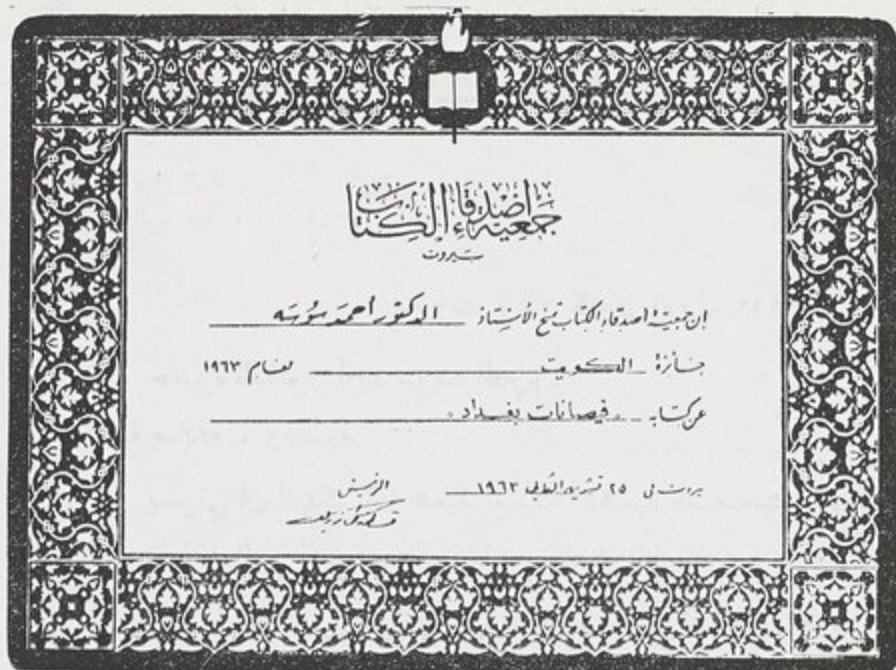 جمعية أصدقاء الكتاب
بيروت
إن جمعية اصدقاء الكتاب تمنح الأستاذ الدكتور أحمد سوسه
جائزة الكويت لعام ١٩٦٣
عن كتابه «فيضانات بغداد»
بيروت في ٢٥ تشرين الثاني ١٩٦٣
الرئيس